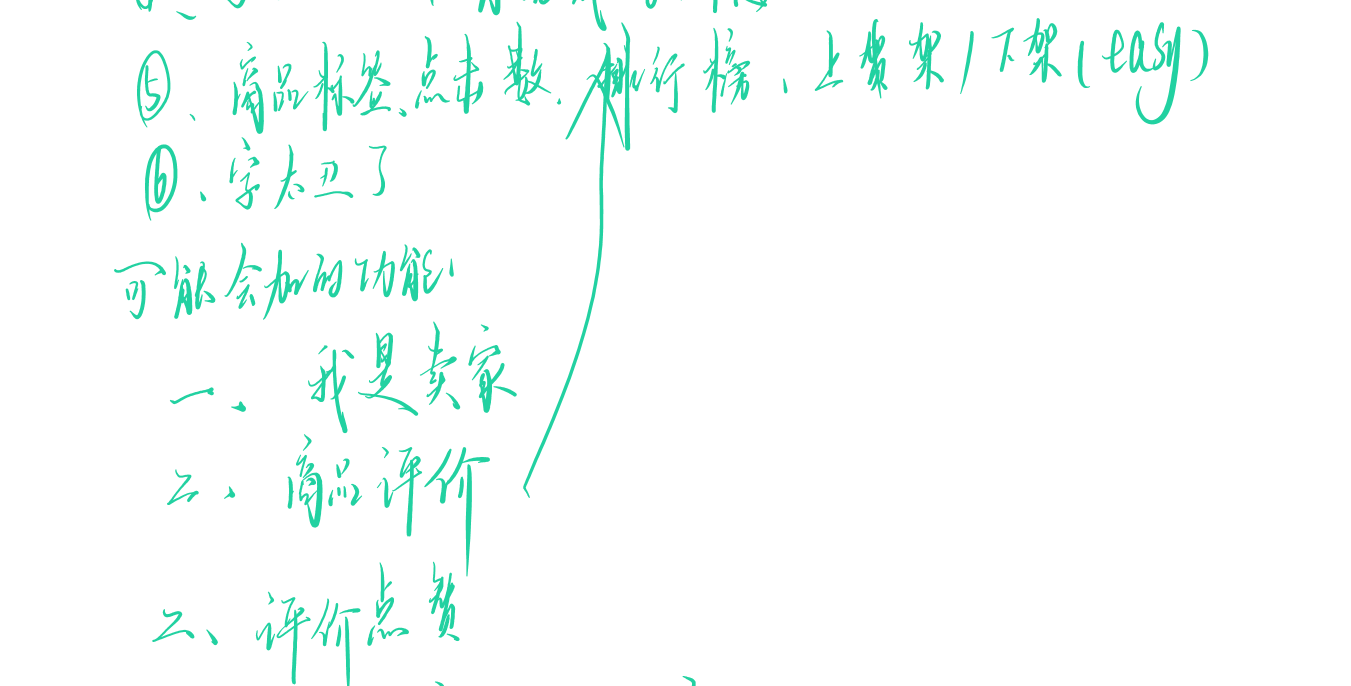 ⑤、商品标签、点击数、排行榜、上货架/下架(easy)
⑥、字太丑了
可能会加的功能:
一、我是卖家
二、商品评价
二、评价点赞